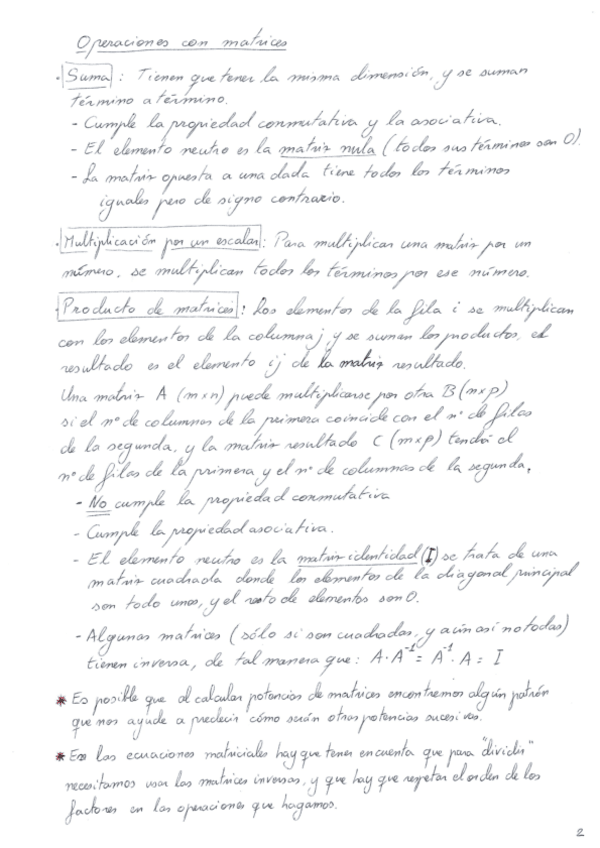 Operaciones con matrices
· Suma : Tienen que tener la misma dimensión, y se suman
término a término.
- Cumple la propiedad conmutativa y la asociativa.
- El elemento neutro es la matriz nula (todos sus términos son 0).
- La matriz opuesta a una dada tiene todos los términos
iguales pero de signo contrario.
· Multiplicación por un escalar : Para multiplicar una matriz por un
número, se multiplican todos los términos por ese número.
· Producto de matrices : Los elementos de la fila i se multiplican
con los elementos de la columna j y se suman los productos, el
resultado es el elemento ij de la matriz resultado.
Una matriz A (m×n) puede multiplicarse por otra B (n×p)
si el nº de columnas de la primera coincide con el nº de filas
de la segunda, y la matriz resultado C (m×p) tendrá el
nº de filas de la primera y el nº de columnas de la segunda.
- No cumple la propiedad conmutativa
- Cumple la propiedad asociativa.
- El elemento neutro es la matriz identidad (I) se trata de una
matriz cuadrada donde los elementos de la diagonal principal
son todo unos, y el resto de elementos son 0.
- Algunas matrices (sólo si son cuadradas, y aún así no todas)
tienen inversa, de tal manera que: A·A⁻¹ = A⁻¹·A = I
* Es posible que al calcular potencias de matrices encontremos algún patrón
que nos ayude a predecir cómo serán otras potencias sucesivas.
* En las ecuaciones matriciales hay que tener en cuenta que para "dividir"
necesitamos usar las matrices inversas, y que hay que respetar el orden de los
factores en las operaciones que hagamos.
2